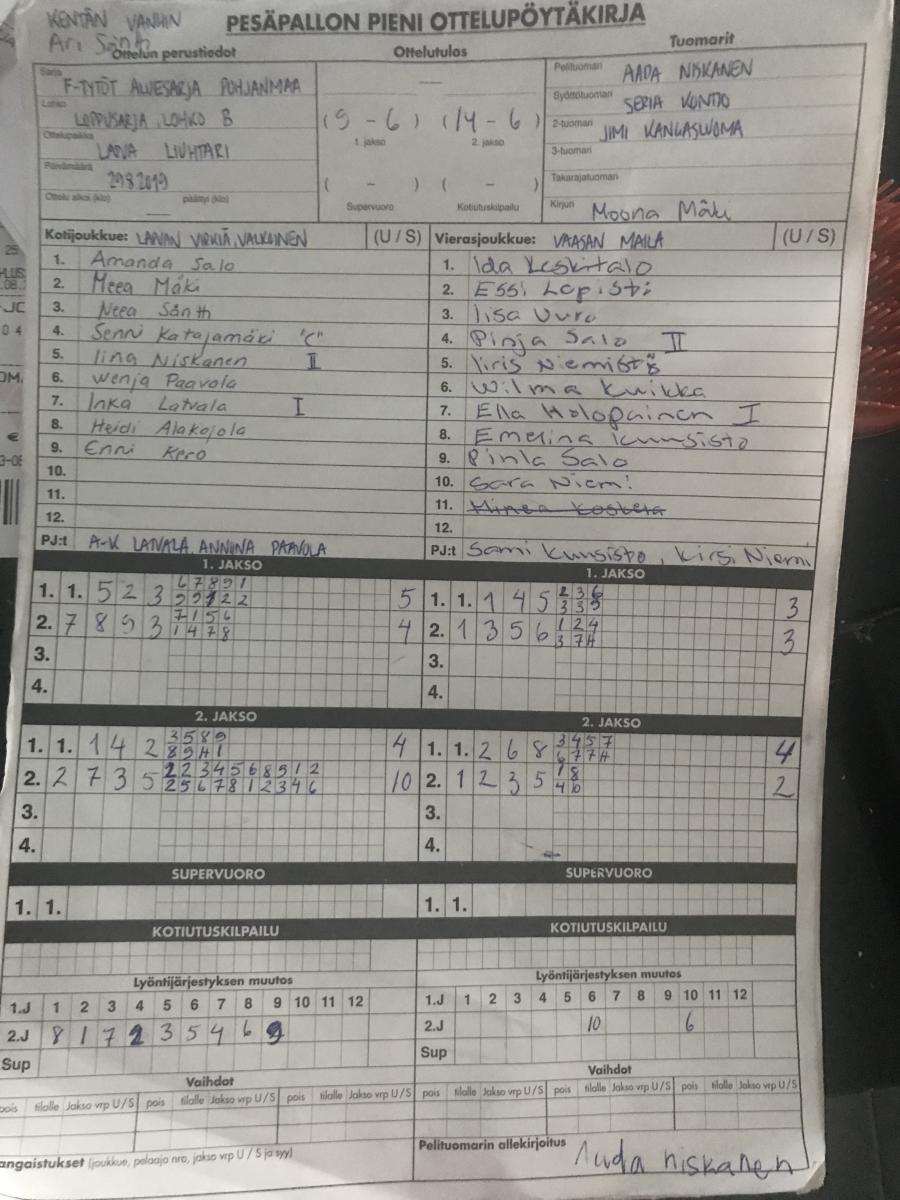 KENTÄN VANHIN
PESÄPALLON PIENI OTTELUPÖYTÄKIRJA
Ari Sänti
Ottelun perustiedot
Ottelutulos
Tuomarit
Sarja F-TYTÖT ALUESARJA POHJANMAA
Lohko LOPPUSARJA, LOHKO B
Ottelupaikka LAPUA LIUHTARI
Päivämäärä 29.8.2019
Ottelu alkoi (klo) — päättyi (klo)
—
(9 - 6) (14 - 6)
1. jakso 2. jakso
( - ) ( - )
Supervuoro Kotiutuskilpailu
Pelituomari AADA NISKANEN
Syöttötuomari SERIA KONTIO
2-tuomari JIMI KANGASLUOMA
3-tuomari
Takarajatuomari
Kirjuri Moona Mäki
Kotijoukkue: LAPUAN VIRKIÄ, VALKOINEN (U / S)
1. Amanda Salo
2. Meea Mäki
3. Neea Säntti
4. Senni Katajamäki "C"
5. Iina Niskanen II
6. Wenja Paavola
7. Inka Latvala I
8. Heidi Alakojola
9. Enni Kero
10.
11.
12.
PJ:t A-K LATVALA, ANNIINA PAAVOLA
Vierasjoukkue: VAASAN MAILA (U / S)
1. Ida Leskitalo
2. Essi Lepistö
3. Iisa Vuro
4. Pinja Salo II
5. Iiris Niemistö
6. Wilma Kuikka
7. Ella Holopainen I
8. Emelina Kuusisto
9. Pinla Salo
10. Sara Niemi
11. Minea Koskela
12.
PJ:t Sami Kuusisto, Kirsi Niemi
1. JAKSO
1. 1. 5 2 3 6 7 8 9 1 5
9 9 1 2 2
2. 7 8 9 3 7 1 5 6 4
1 4 7 8
3.
4.
1. JAKSO
1. 1. 1 4 5 2 3 6 3
3 3 9
2. 1 3 5 6 1 2 4 3
3 7 H
3.
4.
2. JAKSO
1. 1. 1 4 2 3 5 8 9 4
8 9 H 1
2. 2 7 3 5 2 2 3 4 5 6 8 9 1 2 10
2 5 6 7 8 1 2 3 4 6
3.
4.
2. JAKSO
1. 1. 2 6 8 3 4 5 7 4
6 7 7 H
2. 1 2 3 5 1 8 2
4 10
3.
4.
SUPERVUORO
1. 1.
SUPERVUORO
1. 1.
KOTIUTUSKILPAILU
KOTIUTUSKILPAILU
Lyöntijärjestyksen muutos
1.J 1 2 3 4 5 6 7 8 9 10 11 12
2.J 8 1 7 2 3 5 4 6 9
Sup
Lyöntijärjestyksen muutos
1.J 1 2 3 4 5 6 7 8 9 10 11 12
2.J 10 6
Sup
Vaihdot
pois tilalle Jakso vrp U / S pois tilalle Jakso vrp U / S pois tilalle Jakso vrp U / S
Vaihdot
pois tilalle Jakso vrp U / S pois tilalle Jakso vrp U / S pois tilalle Jakso vrp U / S
angaistukset (joukkue, pelaaja nro, jakso vrp U / S ja syy)
Pelituomarin allekirjoitus Aada niskanen